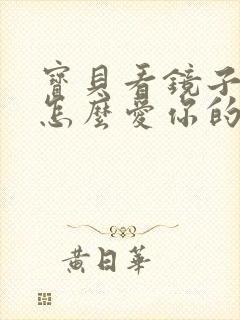 寶貝看鏡子
怎麼愛你的
黃日華